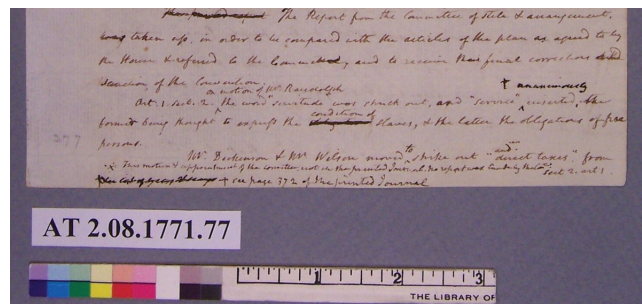 The Report from the Committee of stile & arrangement,
was taken up, in order to be compared with the articles of the plan as agreed to by
the House & referred to the Committee, and to receive the final corrections and
sanction of the Convention.
on motion of Mr. Randolph † unanimously
Art. 1. sect. 2. the word "servitude was struck out, and "service" inserted, the
condition of
former being thought to express the obligations of slaves, & the latter the obligations of free
277
persons.
Mr. Dickinson & Mr. Wilson moved to strike out "and direct taxes" from
* This motion & appointment of the Committee, not in the printed Journal. No report was made by the Com. sect. 2. art. 1.
† see page 372 of the printed Journal
AT 2.08.1771.77
1 2 3
THE LIBRARY OF